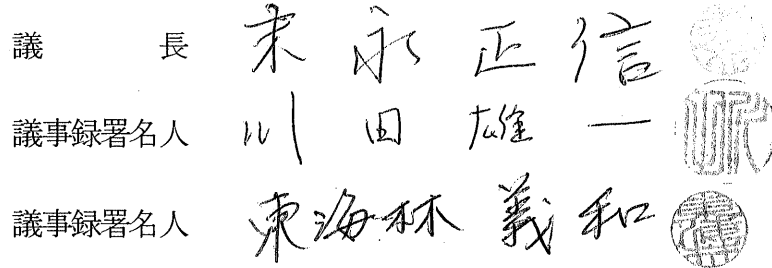 議長 末永正信
議事録署名人 川田雄一
議事録署名人 東海林義和